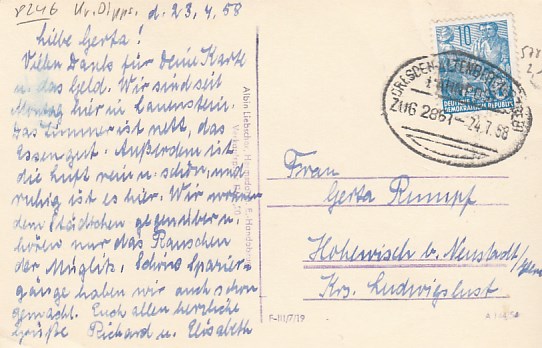 8246 Kr. Dipps. d. 23.7.58
Liebe Gerta!
Vielen Dank für Deine Karte
u. das Geld. Wir sind seit
Montag hier in Lauenstein.
Das Zimmer ist nett, das
Essen gut. Außerdem ist
die Luft rein u. schön, und
ruhig ist es hier. Wir wohnen
dem Städtchen gegenüber u.
hören nur das Rauschen
der Müglitz. Schöne Spazier-
gänge haben wir auch schon
gemacht. Euch allen herzliche
Grüße Richard u. Elisabeth
Albin Liebscher
10
DEUTSCHE
DEMOKRATISCHE REPUBLIK
DRESDEN-ALTENBERG (ERZGEB)
BAHNPOST
ZUG 2867
24.7.58
Frau
Gerta Rumpf
Hohenwisch b. Neustadt/Glewe
Krs. Ludwigslust
F-III/7/19